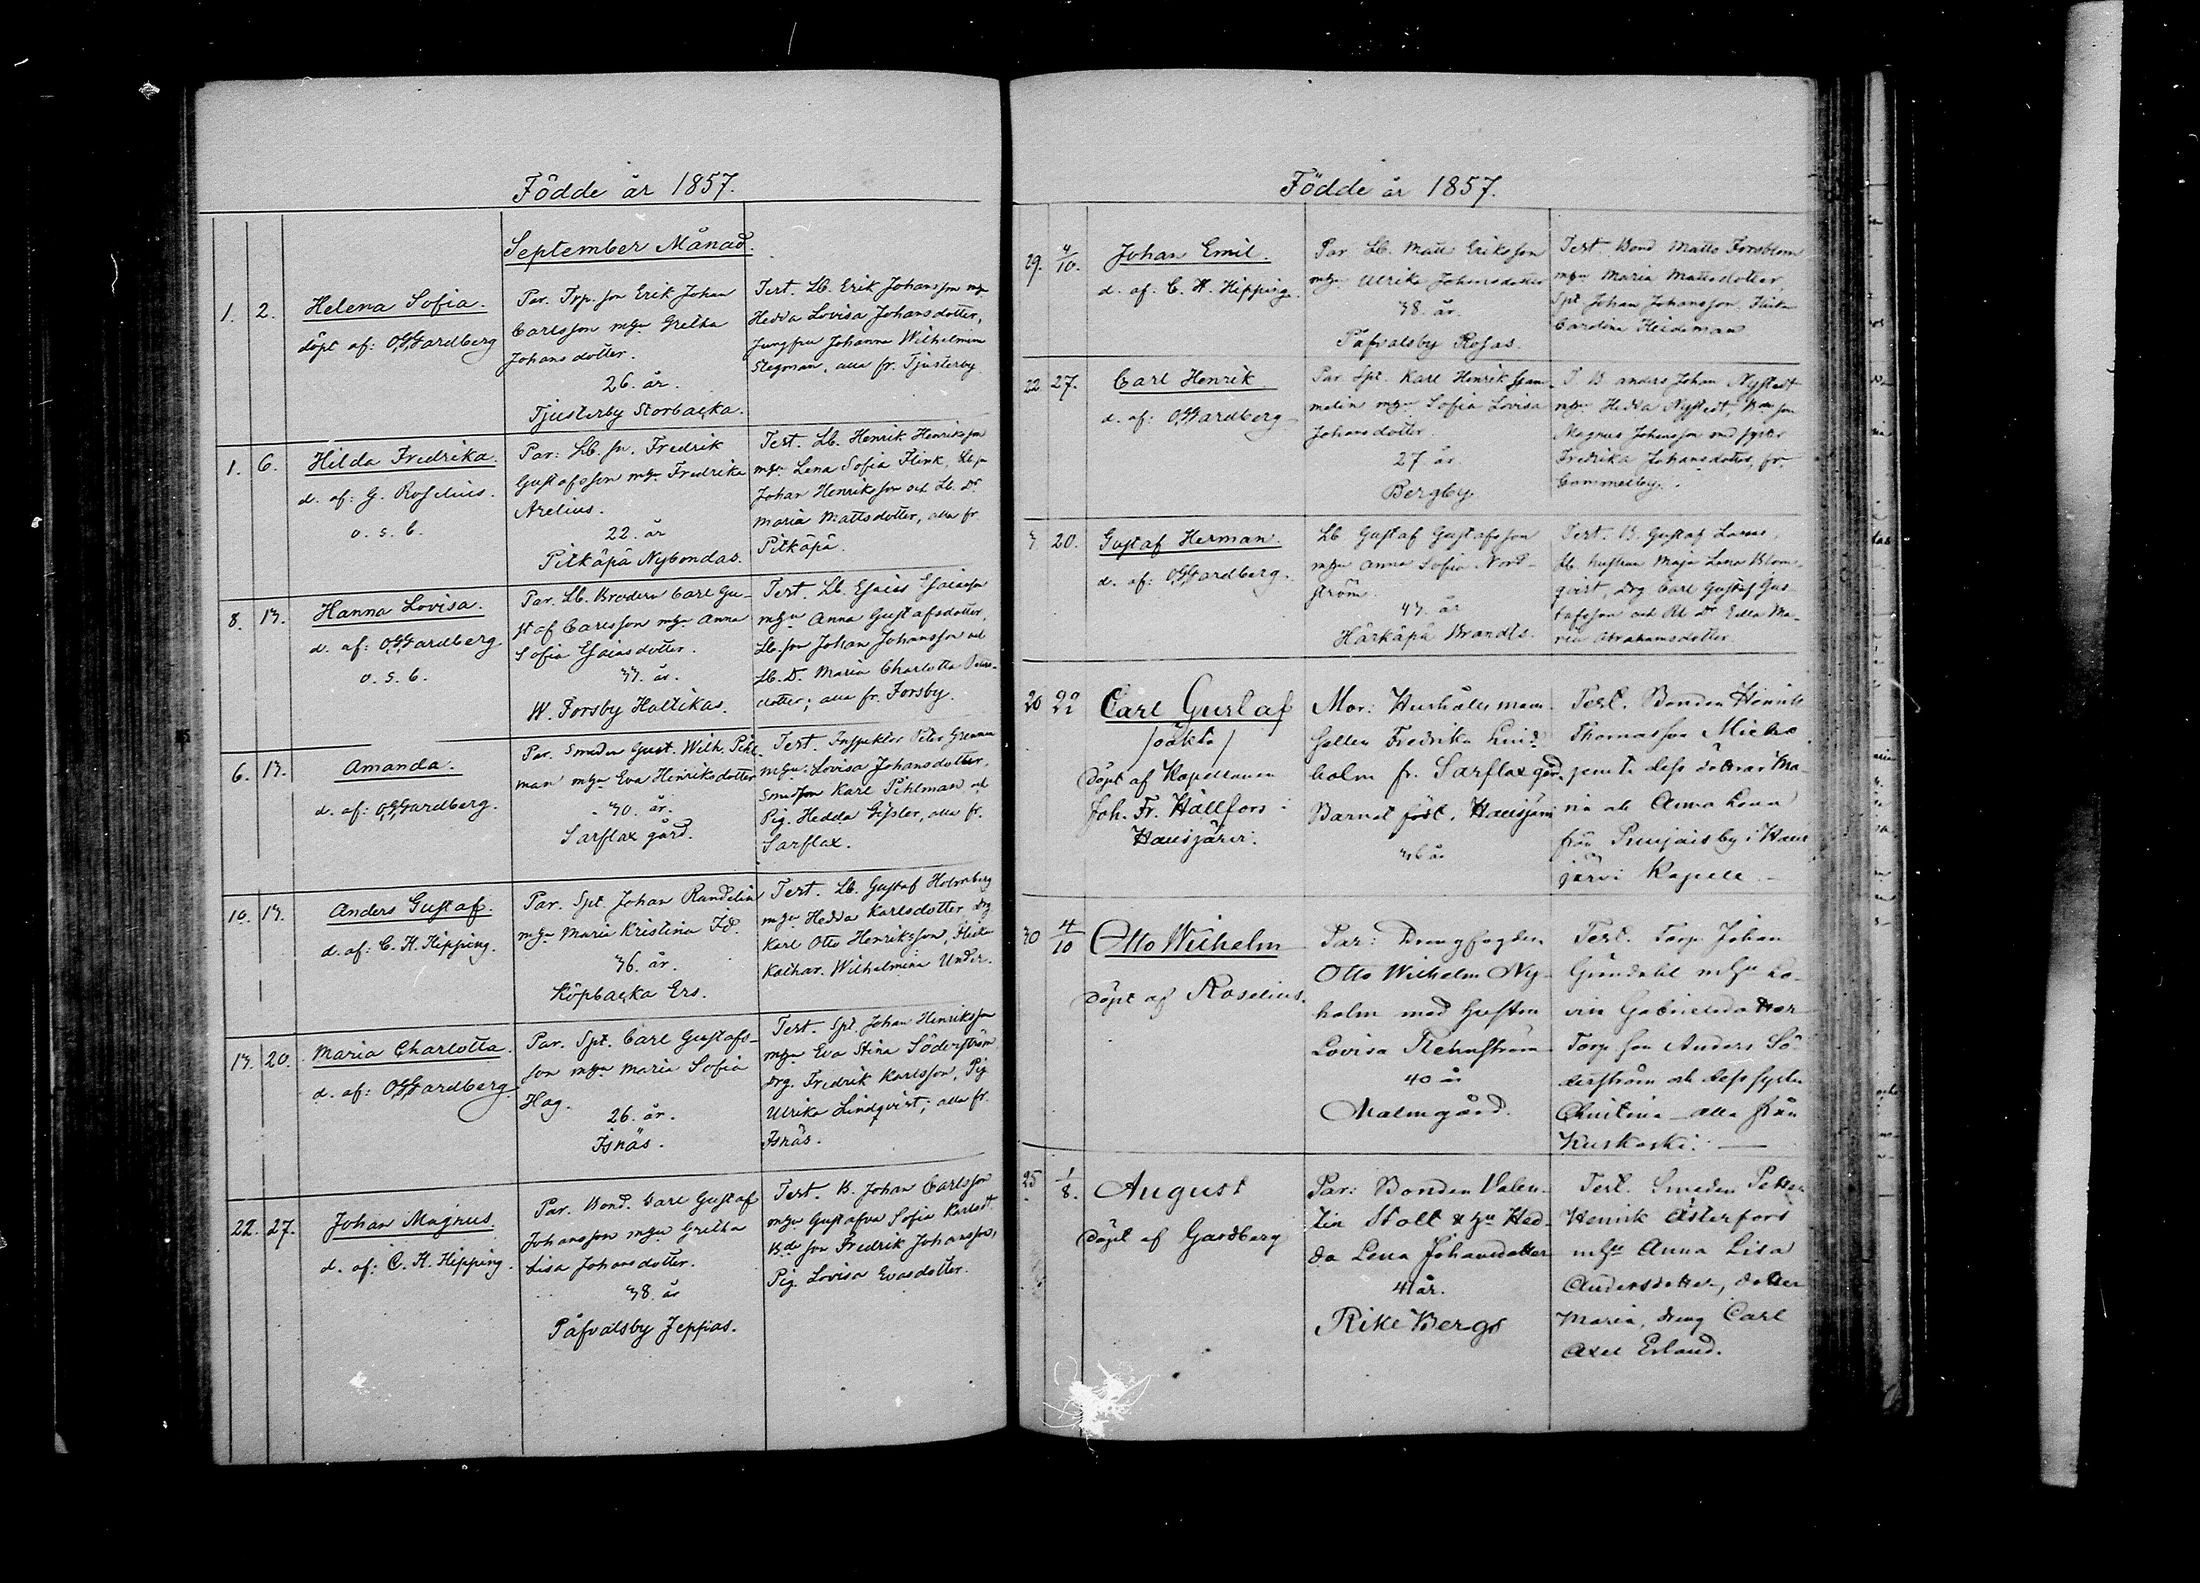 Födde år 1857.
September Månad.
1. 2. Helena Sofia.
döpt af: O. G. Gardberg
Par. Trp. son Erik Johan
Carlsson m hu Gretha
Johansdotter.
26. år.
Tjusterby Storbacka.
Test. Lb. Erik Johansson m hu
Hedda Lovisa Johansdotter,
Jungfru Johanna Wilhelmin
Stegman, alla fr. Tjusterby.
1. 6. Hilda Fredrika.
d. af: G. Roselius.
o. s. b.
Par: Lb. sn. Fredrik
Gustafsson m hu Fredrika
Arelius.
22. år
Pitkäpä Nybondas.
Test. Lb. Henrik Henriksson
m hu Lena Sofia Flink, Lb. sn
Johan Henriksson och Lb. Dr
Maria Mattsdotter, alla fr
Pitkäpä.
8. 13. Hanna Lovisa.
d. af: O. G. Gardberg
o. s. b.
Par. Lb. Brodern Carl Gu-
staf Carlsson m hu Anna
Sofia Esaiasdotter.
33. år.
W. Forsby Hattikas.
Test. Lb. Esaias Esaiasson
m hu Anna Gustafsdotter,
Lb. son Johan Johansson och
Lb. D. Maria Charlotta Peters-
dotter; alla fr. Forsby.
6. 13. Amanda.
d. af: O. G. Gardberg.
Par. Smeden Gust. Wilh. Pihl-
man m hu Eva Henriksdotter
30. år.
Sarflax gård.
Test. Inspektor Peter Grenman
m hu Lovisa Johansdotter,
Smedson Karl Pihlman och
Pig. Hedda Gissler, alla fr.
Sarflax.
10. 13. Anders Gustaf.
d. af: C. H. Hipping.
Par. Spt. Johan Randelin
m hu Maria Kristina Jd.
36. år.
Köpbacka Ers.
Test. Lb. Gustaf Holmberg
m hu Hedda Karlsdotter drg
Karl Otto Henriksson, Flicka
Kathar. Wilhelmina Under.
13. 20. Maria Charlotta.
d. af: O. G. Gardberg
Par. Spt. Carl Gustafs-
son m hu Maria Sofia
Hag.
26. år.
Isnäs.
Test. Spt. Johan Henriksson
m hu Eva Stina Söderström
drg. Fredrik Karlsson, Pig
Ulrika Lindqvist; alla fr.
Isnäs.
22. 27. Johan Magnus.
d. af: C. H. Hipping.
Par. Bond. Carl Gustaf
Johansson m hu Gretha
Lisa Johansdotter.
38. år
Påfvalsby Jeppas.
Test. B. Johan Carlsson
m hu Gustafva Sofia Karlsdt.
Bde son Fredrik Johansson,
Pig. Lovisa Evasdotter.
Födde år 1857.
29. 4/10. Johan Emil.
d. af: C. H. Hipping.
Par. Lb. Matts Eriksson
m hu Ulrika Johansdotter
38. år.
Påfvalsby Rosas.
Test Bond Matts Forsblom
m hu Maria Mattsdotter,
Spt. Johan Johansson, Flicka
Carolina Heideman
22 27. Carl Henrik
d. af: O. G. Gardberg
Par. Spt. Karl Henrik Gam-
melin m hu Sofia Lovisa
Johansdotter.
27. år.
Bergby
T. B Anders Johan Nystedt
m hu Hedda Nystedt, Bde son
Magnus Johansson med syster
Fredrika Johansdotter, fr.
Gammelby.
3 20. Gustaf Herman.
d. af: O. G. Gardberg.
Lb Gustaf Gustafsson
m hu Anna Sofia Nord-
ström.
43. år
Härkäpä Brandts.
Test. B. Gustaf
Lb. hustrun Maja Lena Blom-
qvist, drg Carl Gustaf Gus-
tafsson och Dr Edla Ma-
ria Abrahamsdotter.
20 22 Carl Gustaf
/oäkta/
Döpt af Kapellanen
Joh. Fr. Hällfors i
Hausjärvi.
Mor: Hushålls mam-
sellen Fredrika Lind-
holm fr. Sarflax gård.
Barnet födt i Hausjärvi
36 år
Test. Bonden Henrik
Thomasson
jemte dess döttrar Ma-
ria och Anna Lena
från i Haus
järvi Kapell. –
30 4/10 Otto Wilhelm
Döpt af Roselius.
Par: Drengfogden
Otto Wilhelm Ny-
holm med hustru
Lovisa
40 år
Malmgård.
Test. Torp. Johan
Grundahl m hu Lo-
visa Gabrielsdotter
Torp son Anders Sö-
derström och dess syster
Christina – alla från
Kuskoski. –
25 1/8. August
Döpt af Gardberg
Par: Bonden Valen-
tin Stolt & hu Hed-
da Lena Johansdotter
41 år.
Rike Bergs
Test. Smeden Petter
Henrik Österfors
m hu Anna Lisa
Andersdotter, dotter
Maria, dreng Carl
Axel Erland.